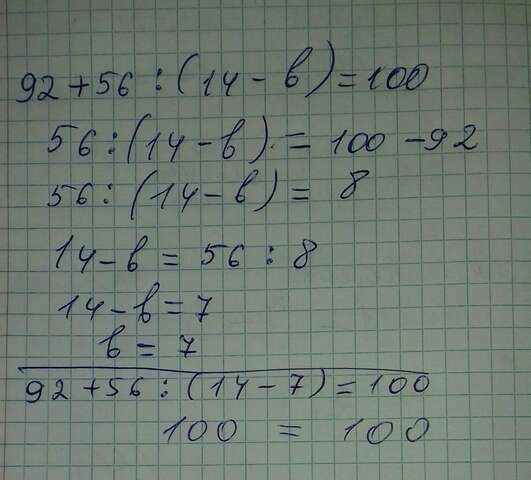 92 + 56 : (14 - в) = 100
56 : (14 - в) = 100 - 92
56 : (14 - в) = 8
14 - в = 56 : 8
14 - в = 7
в = 7
92 + 56 : (14 - 7) = 100
100 = 100